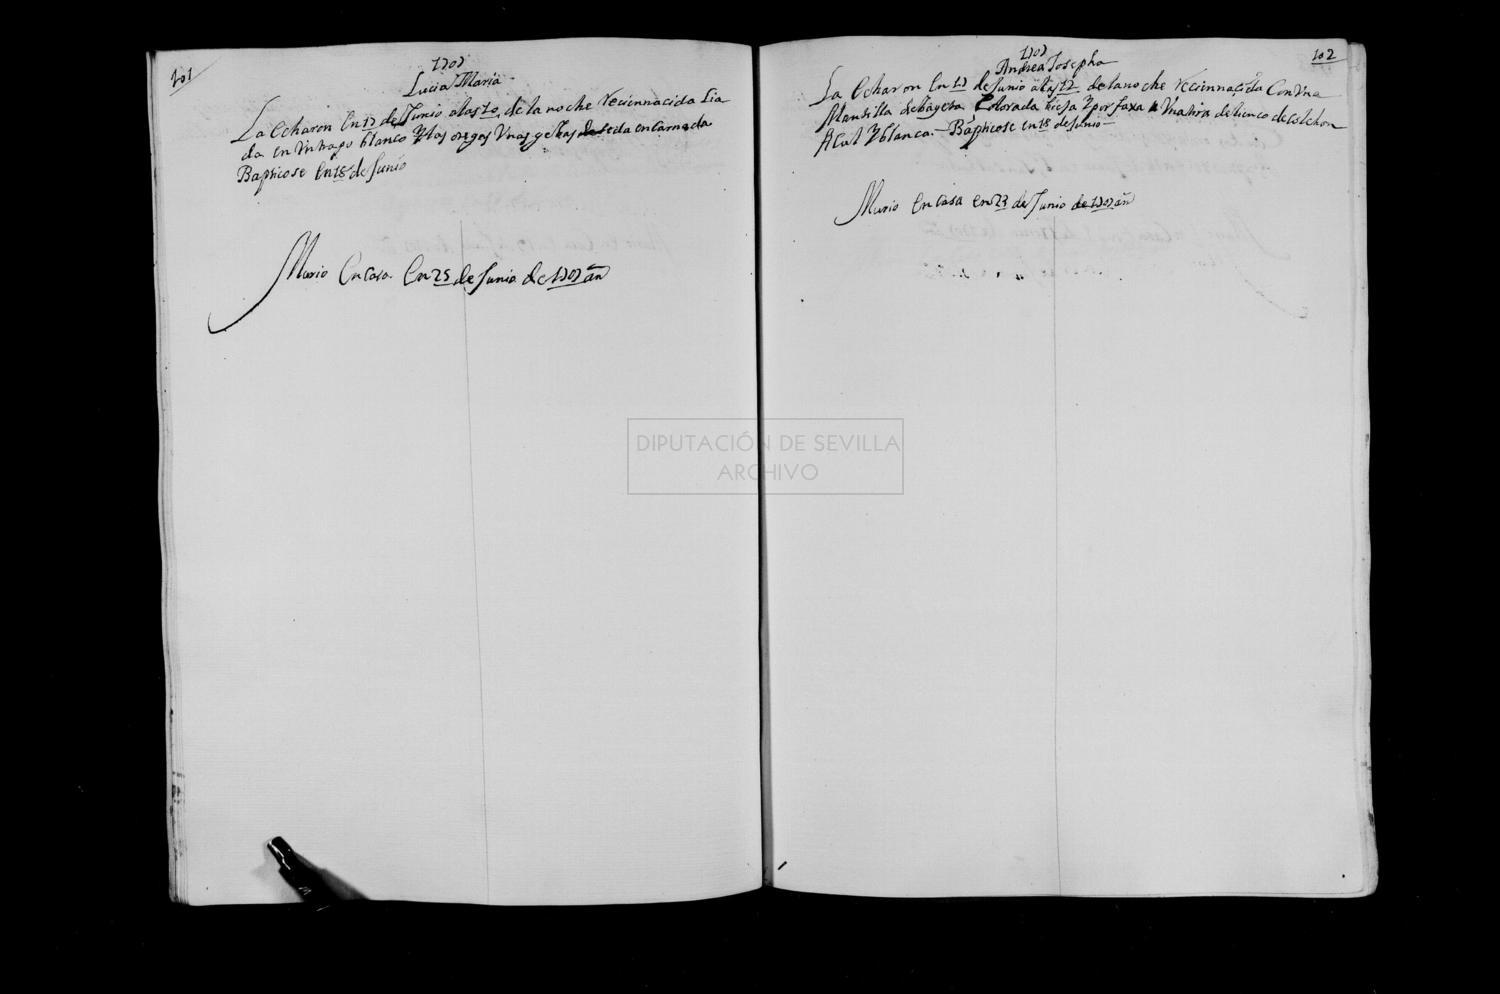 101
1707
Lucia Maria
La Echaron En 17 de Junio alas 10 de la noche Recien nacida Lia
da en Un trapo blanco Y las oregas Unas de seda encarnada
Bapticose En 18 de Junio
Murio En Casa En 25 de Junio de 1707 añ
102
1707
Andrea Josepha
La Echaron En 17 de Junio alas 12 de la noche Recien nacida Con Una
Mantilla de bayeta Colorada Vieja Y por faxa Una tira de lienco de colchon
Acul Y blanca. Bapticose en 18 de Junio
Murio En Casa En 23 de Junio de 1707 añ
DIPUTACIÓN DE SEVILLA
ARCHIVO